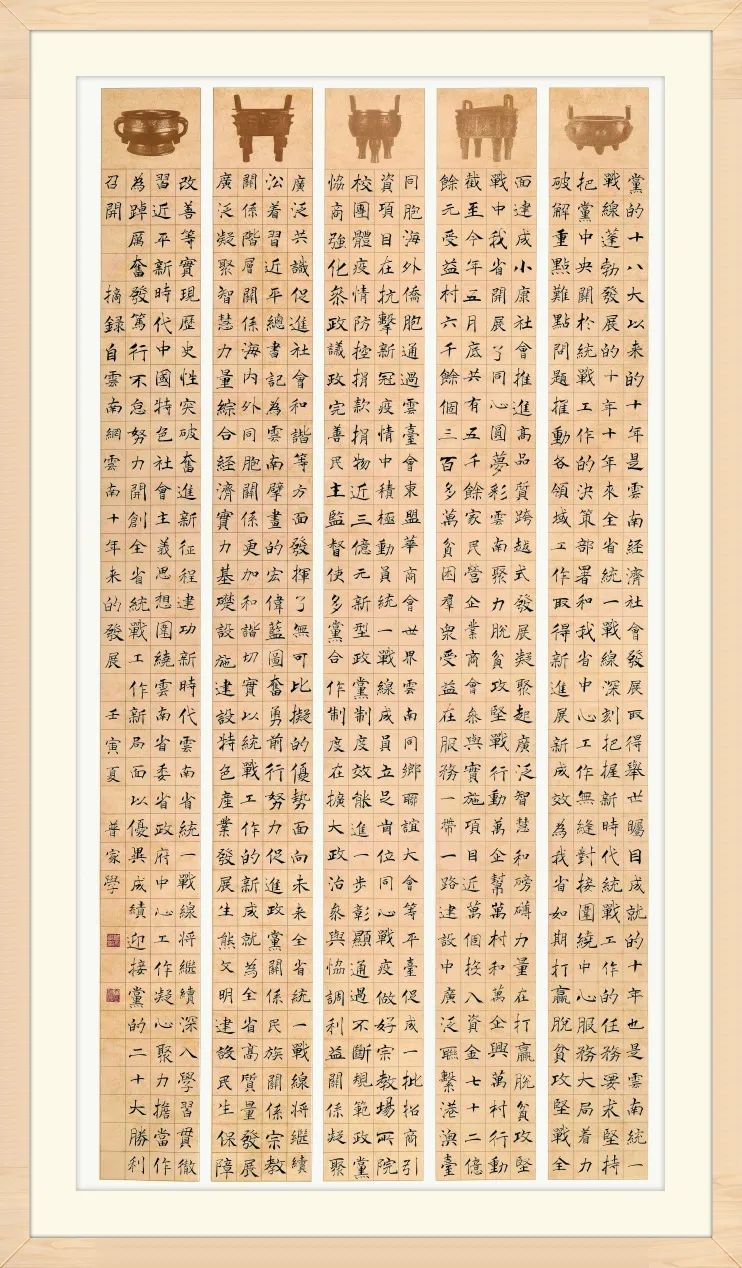 黨的十八大以來的十年是雲南經濟社會發展取得舉世矚目成就的十年也是雲南統一
戰線蓬勃發展的十年十年來全省統一戰線深刻把握新時代統戰工作的任務要求堅持
把黨中央關於統戰工作的決策部署和我省中心工作無縫對接圍繞中心服務大局着力
破解重點難點問題摧動各領域工作取得新進展新成效為我省如期打贏脫貧攻堅戰全
面建成小康社會推進高品質跨越式發展凝聚起廣泛智慧和磅礴力量在打贏脫貧攻堅
戰中我省開展了同心圓夢彩雲南聚力脫貧攻堅戰行動萬企幫萬村和萬企興萬村行動
截至今年五月底共有五千餘家民營企業商會參與實施項目近萬個投入資金七十二億
餘元受益村六千餘個三百多萬貧困羣衆受益在服務一帶一路建設中廣泛聯繫港澳臺
同胞海外僑胞通過雲臺會東盟華商會世界雲南同鄉聯誼大會等平臺促成一批招商引
資項目在抗擊新冠疫情中積極動員統一戰線成員立足崗位同心戰疫做好宗教場所院
校團體疫情防控捐款捐物近三億元新型政黨制度效能進一步彰顯通過不斷規範政黨
協商強化參政議政完善民主監督使多黨合作制度在擴大政治參與協調利益關係凝聚
廣泛共識促進社會和諧等方面發揮了無可比擬的優勢面向未來全省統一戰線將繼續
沿着習近平總書記為雲南擘畫的宏偉藍圖奮勇前行努力促進政黨關係民族關係宗教
關係階層關係海內外同胞關係更加和諧切實以統戰工作的新成就為全省高質量發展
廣泛凝聚智慧力量綜合經濟實力基礎設施建設特色產業發展生態文明建設民生保障
改善等實現歷史性突破奮進新征程建功新時代雲南省統一戰線將繼續深入學習貫徹
習近平新時代中國特色社會主義思想圍繞雲南省委省政府中心工作凝心聚力擔當作
為踔厲奮發篤行不怠努力開創全省統戰工作新局面以優異成績迎接黨的二十大勝利
召開 摘錄自雲南網雲南十年來的發展 壬寅夏 普家學